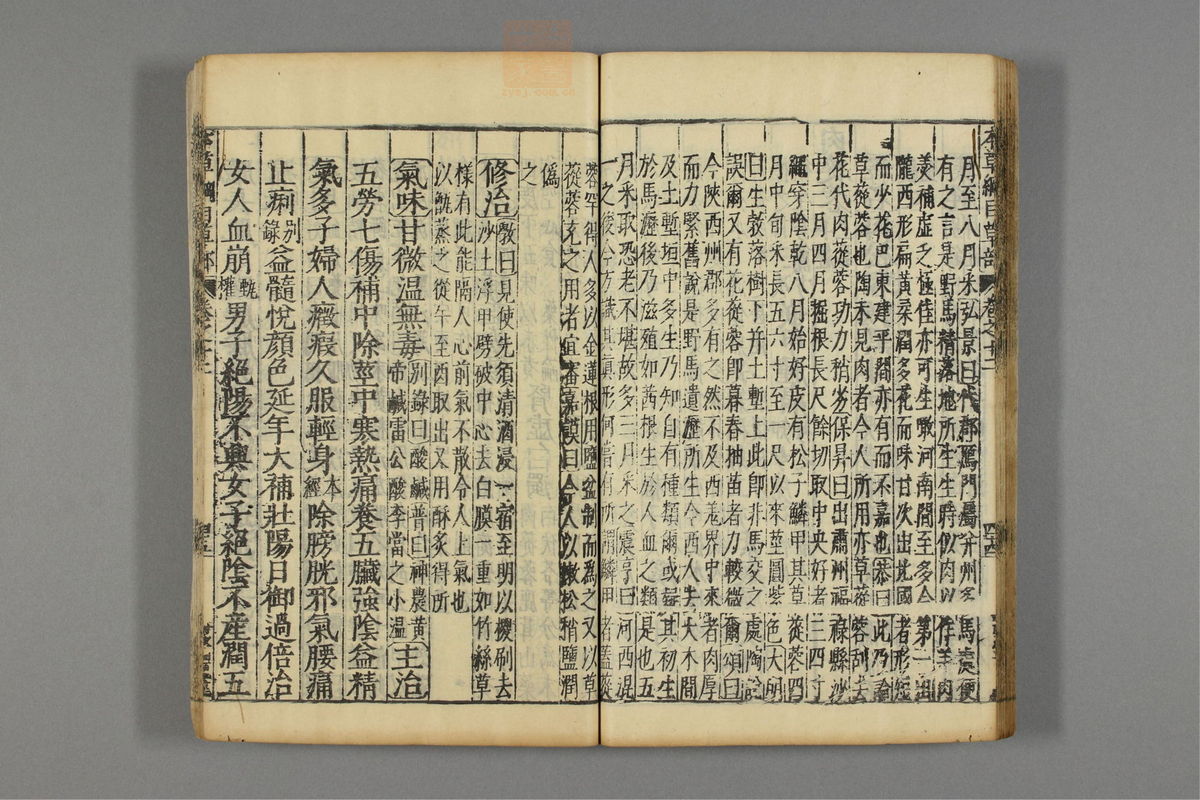 月至八月采弘景曰代郡鴈門屬并州多馬處便
有之言是野馬精落地所生生時似肉以作羊肉
羹補虛乏極佳亦可生噉河南間至多今第一出
隴西形扁黃柔潤多花而味甘次出北國者形短
而少花巴東建平間亦有而不嘉也恭曰此乃論
草蓯蓉也陶未見肉者今人所用亦草蓯蓉刮去
花代肉蓯蓉功力稍劣保昇曰出肅州福祿縣沙
中三月四月掘根長尺餘切取中央好者三四寸
繩穿陰乾八月始好皮有松子鱗甲其草蓯蓉四
月中旬采長五六寸至一尺以來莖圓紫色大明
曰生㪍落樹下并土塹上此即非馬交之處陶說
誤爾又有花蓯蓉即暮春抽苗者力較微爾頌曰
今陝西州郡多有之然不及西羌界中來者肉厚
而力緊舊說是野馬遺瀝所生今西人云大木間
及土塹垣中多生乃知自有種類爾或疑其初生
於馬瀝後乃滋殖如茜根生於人血之類是也五
月采取恐老不堪故多三月采之震亨曰河西混
一之後今方識其真形何嘗有所謂鱗甲者蓋蓯
蓉罕得人多以金蓮根用鹽盆制而為之又以草
蓯蓉充之用者宜審嘉謨曰今人以嫩松梢鹽潤
偽
之
修治 斆曰凡使先須清酒浸一宿至明以椶刷去
沙土浮甲劈破中心去白膜一重如竹絲草
樣有此能隔人心前氣不散令人上氣也
以甑蒸之從午至酉取出又用酥炙得所
氣味甘微温無毒 别錄曰酸鹹普曰神農黃帝鹹雷公酸李當之小温 主治
五勞七傷補中除莖中寒熱痛養五臟強陰益精
氣多子婦人癥瘕久服輕身 本經 除膀胱邪氣腰痛
止痢 别錄 益髓悅顏色延年大補壯陽日御過倍治
女人血崩 甄權 男子絕陽不興女子絕陰不産潤五
本草綱目草部 卷之十二